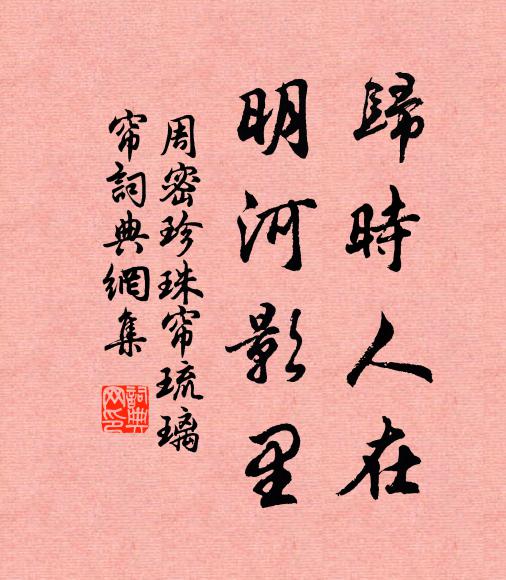 歸時人在
明河影里
周密珍珠帘琉璃
帘詞典網集
詞典
网印